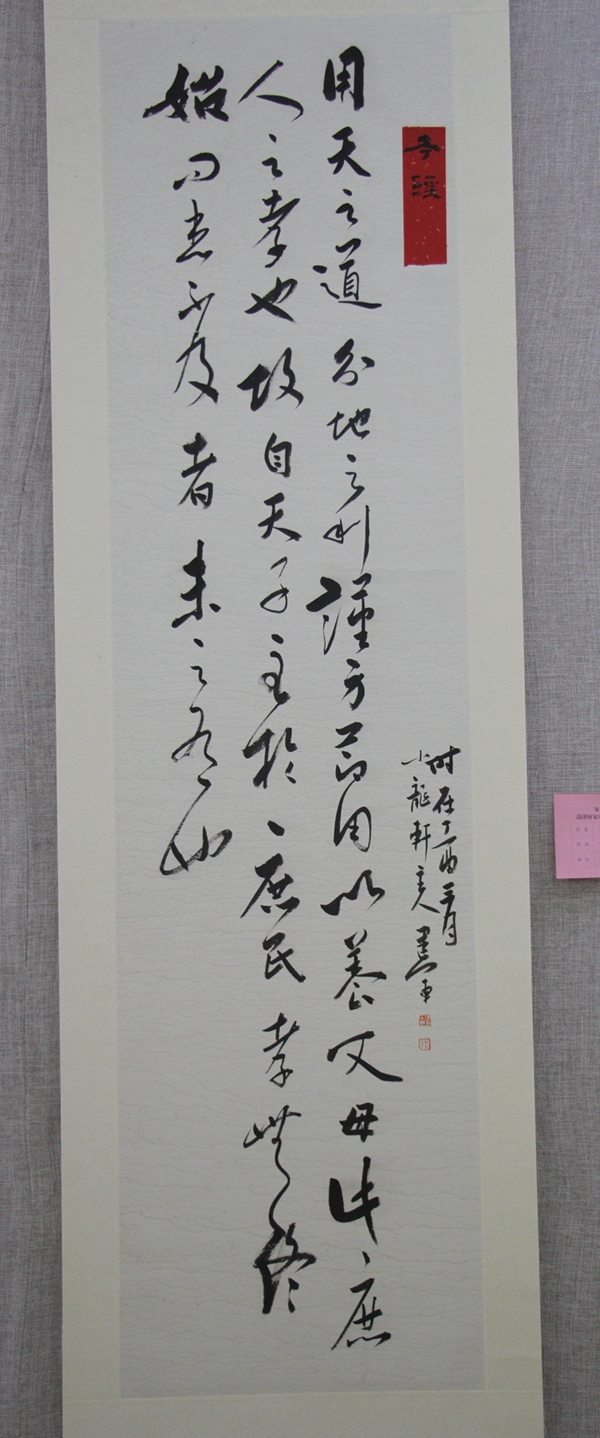 孝經
用天之道分地之利謹身節用以養父母此庶
人之孝也故自天子至於庶民孝無終
始而患不及者未之有也
时在丁酉三月
小龍軒主人